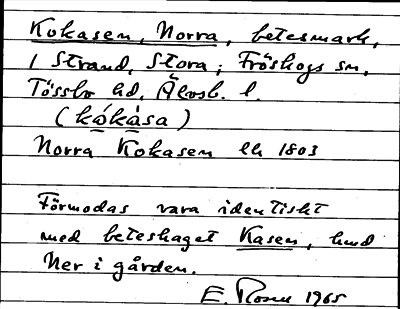 Kokasen, Norra, betesmark,
i Strand, Stora; Fröskogs sn,
Tössbo hd, Älvsb. l.
(kókàsa)
Norra Kokasen lh 1803
Förmodas vara identiskt
med beteshaget Kasen,
ner i gården.
E. Rosen 1965